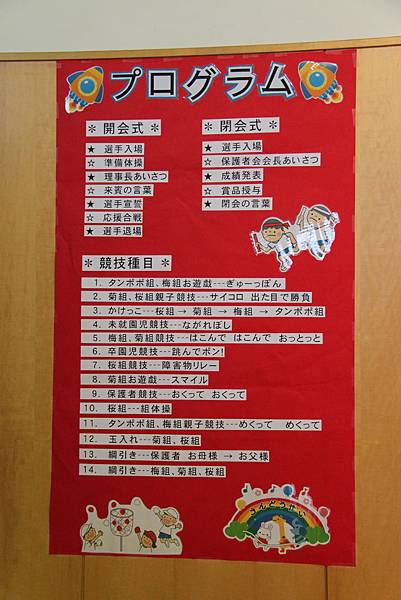 プログラム
＊ 開会式 ＊
★ 選手入場
☆ 準備体操
★ 理事長あいさつ
☆ 来賓の言葉
★ 選手宣誓
☆ 応援合戦
★ 選手退場
＊ 閉会式 ＊
★ 選手入場
☆ 保護者会会長あいさつ
★ 成績発表
☆ 賞品授与
★ 閉会の言葉
＊ 競技種目 ＊
1. タンポポ組、梅組お遊戯---ぎゅーっぽん
2. 菊組、桜組親子競技---サイコロ 出た目で勝負
3. かけっこ---桜組 → 菊組 → 梅組 → タンポポ組
4. 未就園児競技---ながれぼし
5. 梅組、菊組競技---はこんで はこんで おっとっと
6. 卒園児競技---跳んでポン!
7. 桜組競技---障害物リレー
8. 菊組お遊戯---スマイル
9. 保護者競技---おくって おくって
10. 桜組---組体操
11. タンポポ組、梅組親子競技---めくって めくって
12. 玉入れ---菊組、桜組
13. 綱引き---保護者 お母様 → お父様
14. 綱引き---梅組、菊組、桜組
うんどうかい